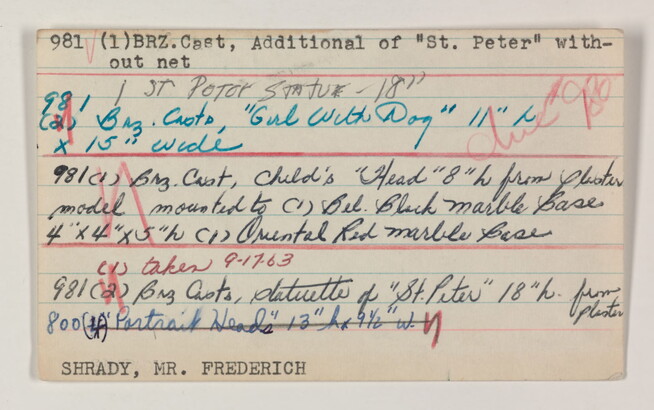 981 (1)BRZ.Cast, Additional of "St. Peter" with-
out net
1 ST. PETER STATUE - 18"
981
(2) Brz. Casts, "Girl With Dog" 11" h
x 15" wide
981 (1) Brz. Cast, Child's "Head" 8" h from plaster
model mounted to (1) Bel. Black marble Base
4" x 4" x 5" h (1) Oriental Red marble Base
(1) taken 9-17-63
981 (2) Brz Casts, statuette of "St. Peter" 18" h. from
plaster
800 "Portrait Heads" 13" h x 9½" w.
SHRADY, MR. FREDERICH